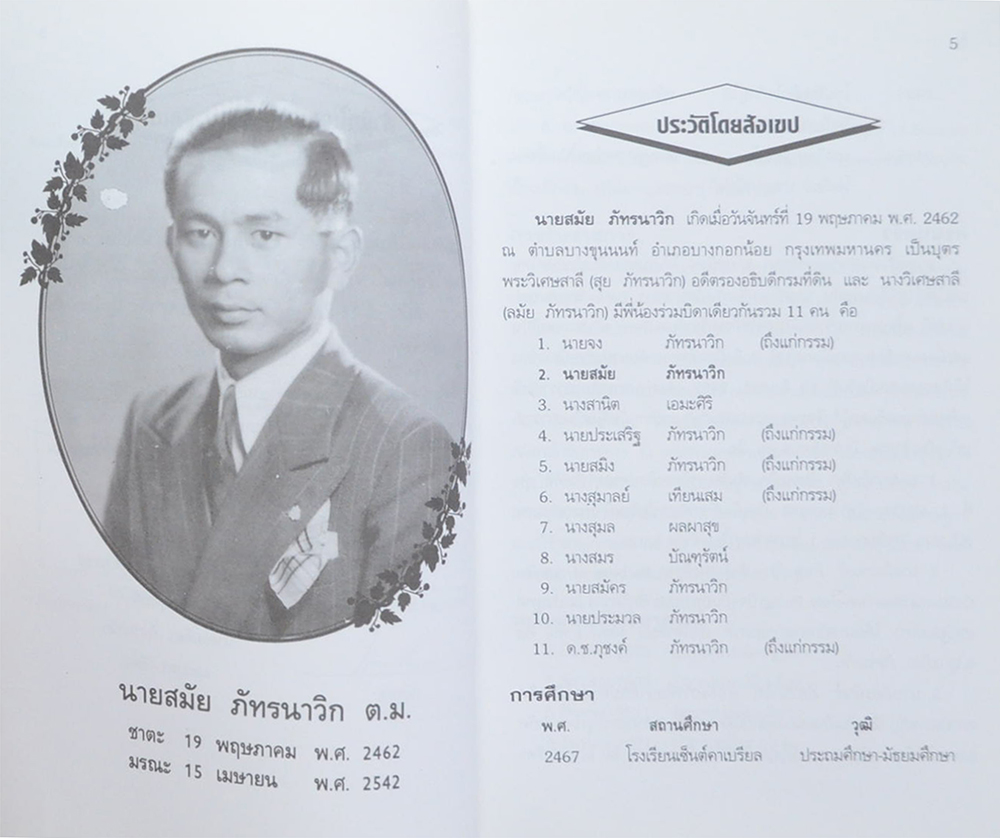 นายสมัย ภัทรนาวิก ต.ม.
ชาตะ 19 พฤษภาคม พ.ศ. 2462
มรณะ 15 เมษายน พ.ศ. 2542
5
ประวัติโดยสังเขป
นายสมัย ภัทรนาวิก เกิดเมื่อวันจันทร์ที่ 19 พฤษภาคม พ.ศ. 2462
ณ ตำบลบางขุนนนท์ อำเภอบางกอกน้อย กรุงเทพมหานคร เป็นบุตร
พระวิเศษสาลี (สุย ภัทรนาวิก) อดีตรองอธิบดีกรมที่ดิน และ นางวิเศษสาลี
(ลมัย ภัทรนาวิก) มีพี่น้องร่วมบิดาเดียวกันรวม 11 คน คือ
1. นายจง ภัทรนาวิก (ถึงแก่กรรม)
2. นายสมัย ภัทรนาวิก
3. นางสานิต เอมะศิริ
4. นายประเสริฐ ภัทรนาวิก (ถึงแก่กรรม)
5. นายสมิง ภัทรนาวิก (ถึงแก่กรรม)
6. นางสุมาลย์ เทียนเสม (ถึงแก่กรรม)
7. นางสุมล ผลผาสุข
8. นางสมร บัณฑุรัตน์
9. นายสมัคร ภัทรนาวิก
10. นายประมวล ภัทรนาวิก
11. ด.ช.ภุชงค์ ภัทรนาวิก (ถึงแก่กรรม)
การศึกษา
พ.ศ. สถานศึกษา วุฒิ
2467 โรงเรียนเซ็นต์คาเบรียล ประถมศึกษา-มัธยมศึกษา